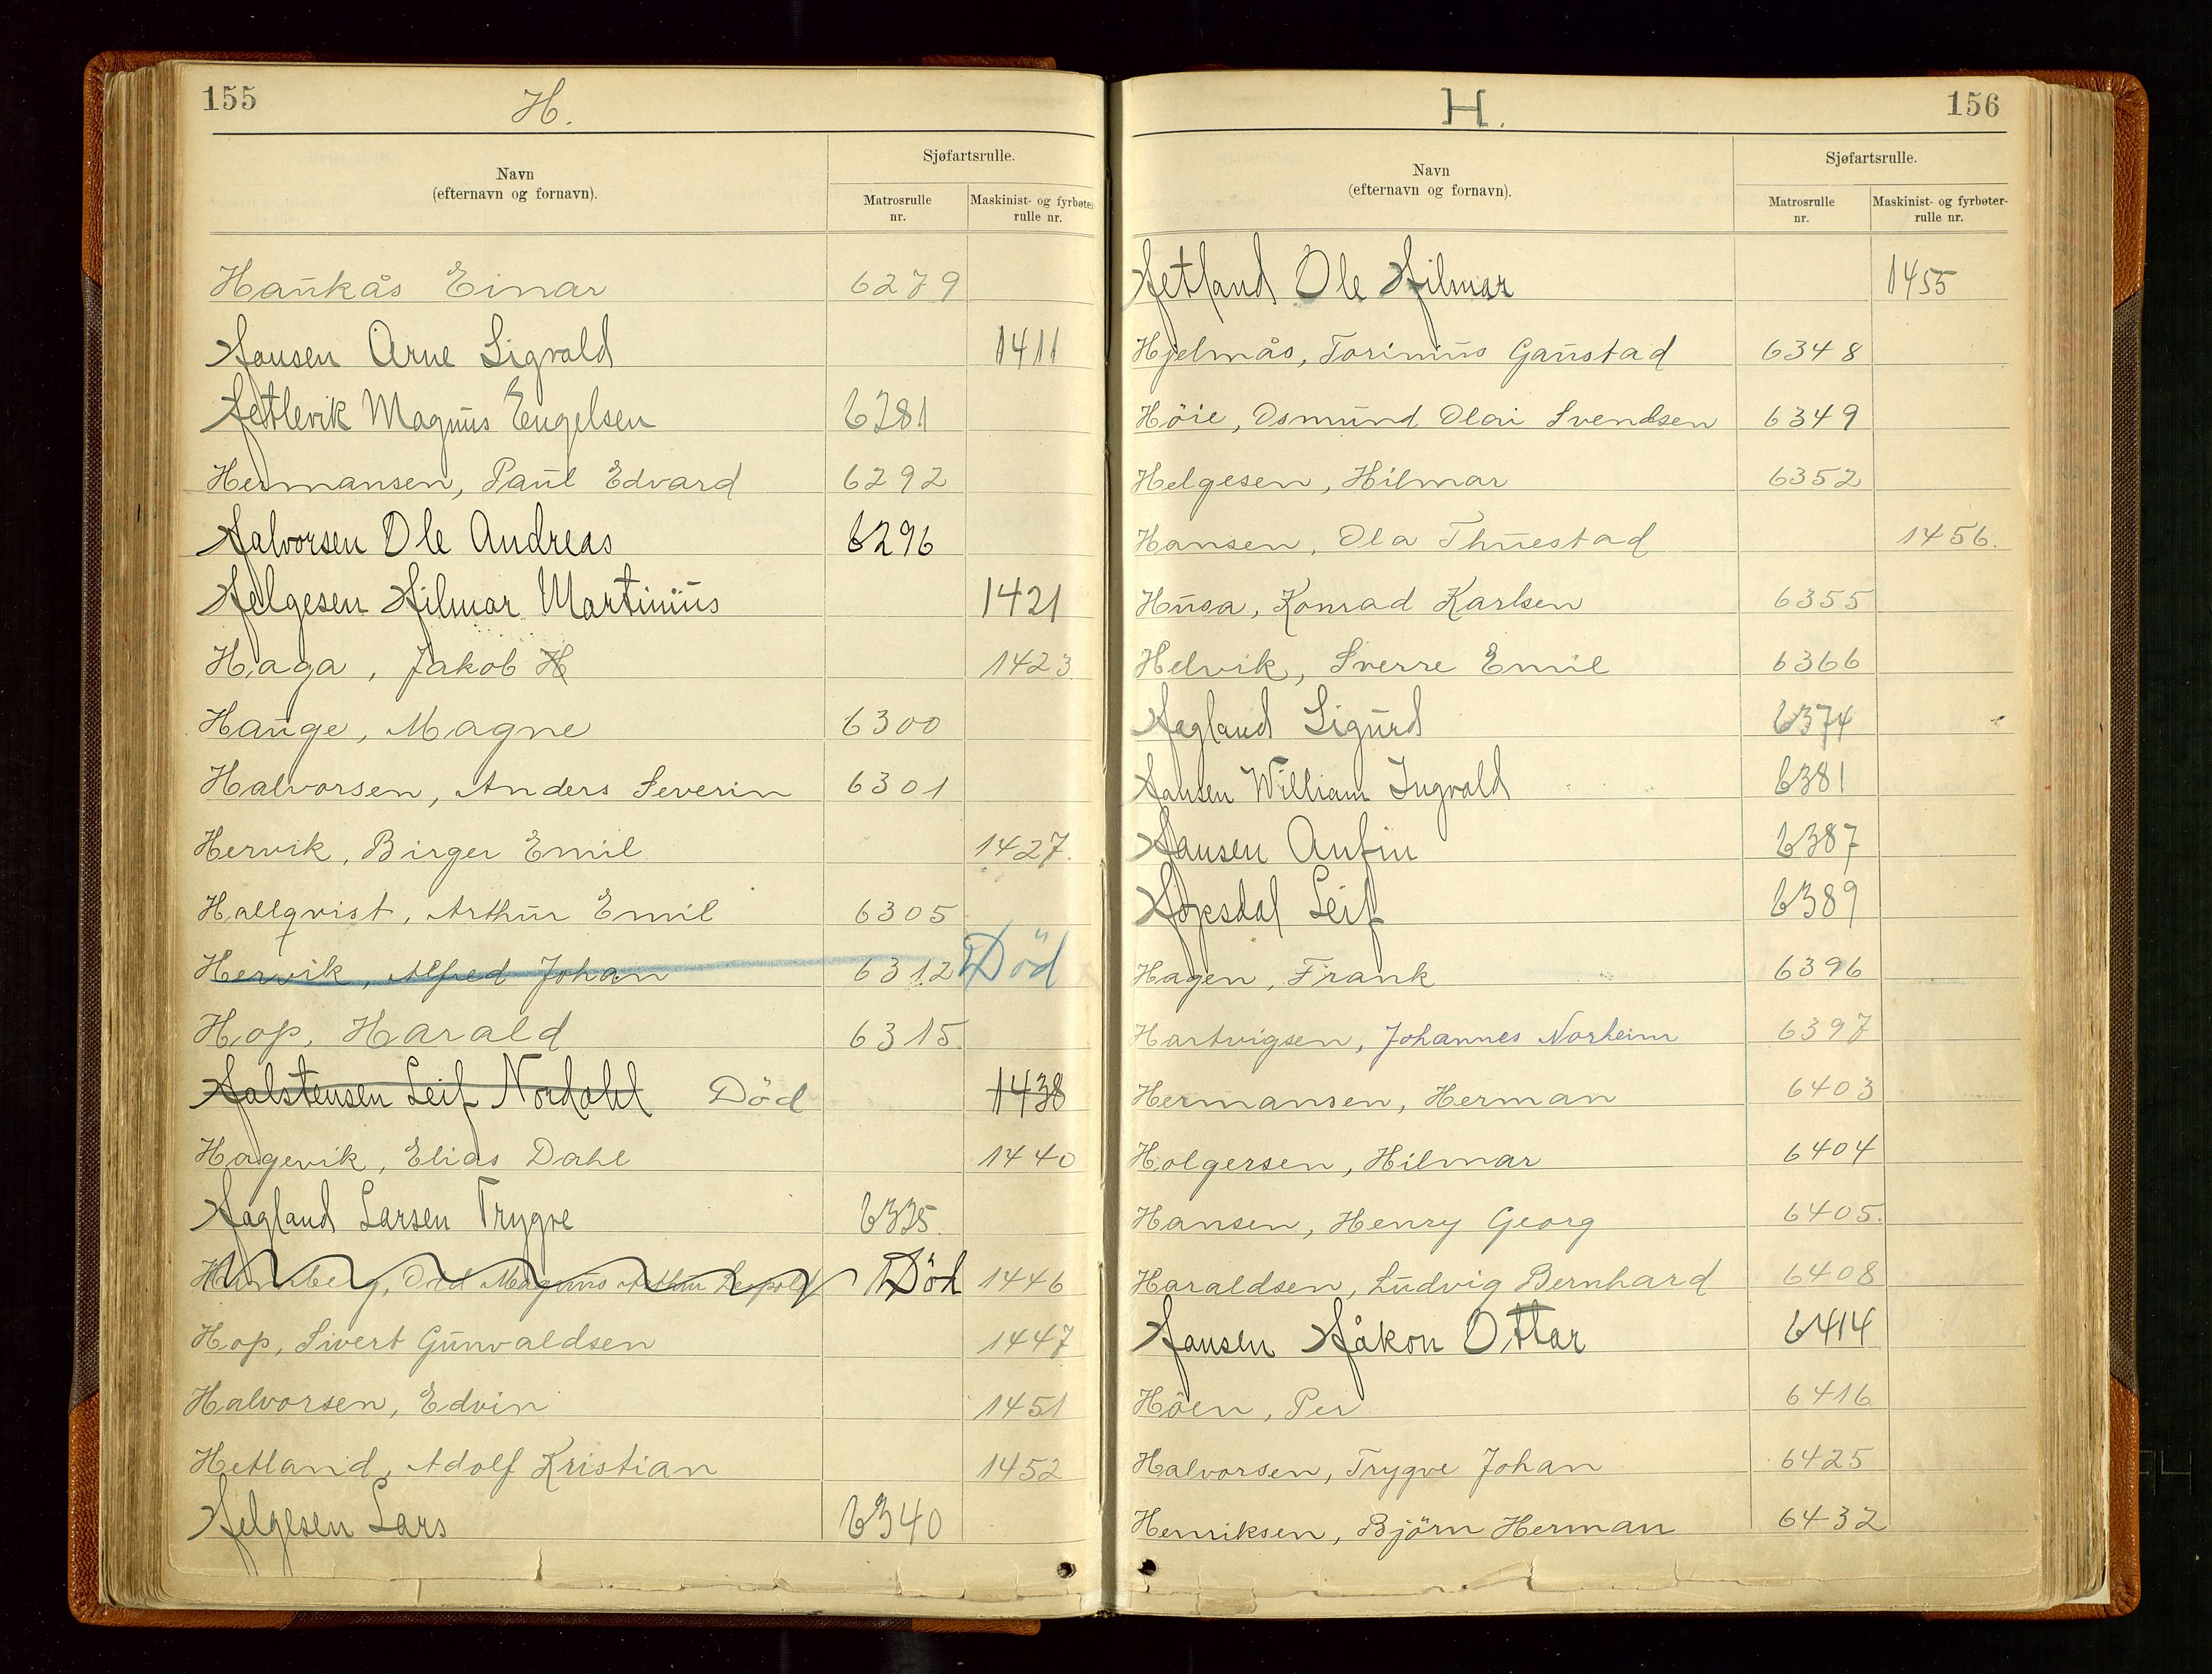 155
H.
Navn
(efternavn og fornavn).
Sjøfartsrulle.
Matrosrulle
nr.
Maskinist- og fyrbøter
rulle nr.
Haukås Einar 6279
Hansen Arne Sigvald 1411
Hetlevik Magnus Engelsen 6281
Hermansen, Paul Edvard 6292
Halvorsen Ole Andreas 6296
Helgesen Hilmar Martinius 1421
Haga, Jakob H 1423
Hauge, Magne 6300
Halvorsen, Anders Severin 6301
Hervik, Birger Emil 1427.
Hallqvist, Arthur Emil 6305
Hervik, Alfred Johan 6312 Död
Hop, Harald 6315
Halstensen Leif Nordahl Död 1438
Hagevik, Elias Dahl 1440
Hagland Larsen Trygve 6335.
Magnus Arthur Leopold Död 1446
Hop, Sivert Gunvaldsen 1447
Halvorsen, Edvin 1451
Hetland, Adolf Kristian 1452
Helgesen Lars 6340
H.
156
Navn
(efternavn og fornavn).
Sjøfartsrulle.
Matrosrulle
nr.
Maskinist- og fyrbøter-
rulle nr.
Hetland Ole Hilmar 1455
Hjelmås, Torinius Gaustad 6348
Höie, Osmund Olai Svendsen 6349
Helgesen, Hilmar 6352
Hansen, Ola Thuestad 1456.
Husa, Konrad Karlsen 6355
Helvik, Sverre Emil 6366
Hegland Sigurd 6374
Hansen William Ingvald 6381
Hansen Anfin 6387
Hopsdal Leif 6389
Hagen, Frank 6396
Hartvigsen, Johannes Norheim 6397
Hermansen, Herman 6403
Holgersen, Hilmar 6404
Hansen, Henry Georg 6405.
Haraldsen, Ludvig Bernhard 6408
Hansen Håkon Ottar 6414
Höen, Per 6416
Halvorsen, Trygve Johan 6425
Henriksen, Björn Herman 6432